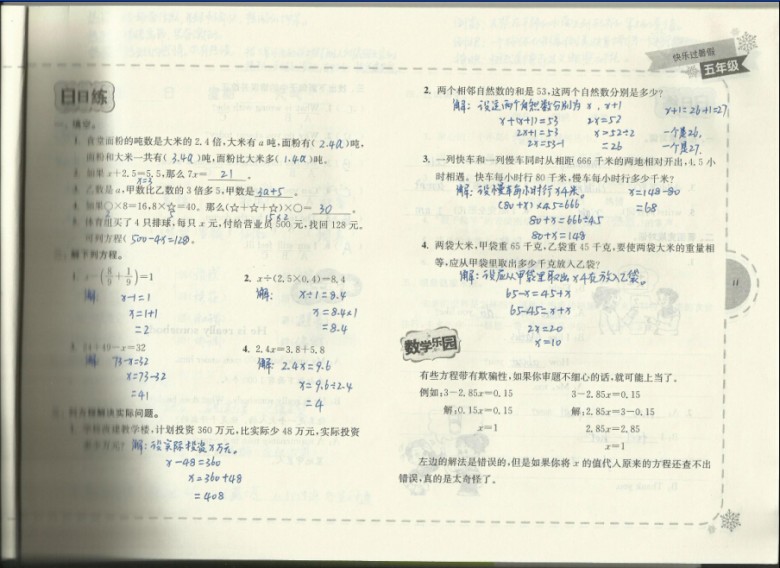 快乐过暑假
五年级
日日练
一、填空。
1. 食堂面粉的吨数是大米的 2.4 倍,大米有 a 吨,面粉有( 2.4a )吨,
面粉和大米一共有( 3.4a )吨,面粉比大米多( 1.4a )吨。
2. 如果 x+2.5=5.5,那么 7x= 21 。
x=3
3. 乙数是 a,甲数比乙数的 3 倍多 5,甲数是 3a+5 。
4. 如果○×8=16,8×☆=40。那么(☆+☆+☆)×○= 30 。
15×2
5. 体育组买了 4 只排球,每只 x 元,付给营业员 500 元,找回 128 元。
可列方程( 500-4x=128 )。
二、解下列方程。
1. x-(8/9+1/9)=1
解: x-1=1
x=1+1
=2
2. x÷(2.5×0.4)=8.4
解: x÷1=8.4
x=8.4×1
=8.4
3. 24+49-x=32
解: 73-x=32
x=73-32
=41
4. 2.4x=3.8+5.8
解: 2.4x=9.6
x=9.6÷2.4
=4
三、列方程解决实际问题。
1. 学校改建教学楼,计划投资 360 万元,比实际少 48 万元,实际投资
多少万元? 解:设实际投资x万元。
x-48=360
x=360+48
=408
2. 两个相邻自然数的和是 53,这两个自然数分别是多少?
解:设这两个自然数分别为 x,x+1
x+(x+1)=53
2x+1=53
2x=53-1
2x=52
x=52÷2
=26
x+1=26+1=27
一个是26,
一个是27.
3. 一列快车和一列慢车同时从相距 666 千米的两地相对开出,4.5 小
时相遇。快车每小时行 80 千米,慢车每小时行多少千米?
解:设慢车每小时行x千米。
(80+x)×4.5=666
80+x=666÷4.5
80+x=148
x=148-80
=68
4. 两袋大米,甲袋重 65 千克,乙袋重 45 千克,要使两袋大米的重量相
等,应从甲袋里取出多少千克放入乙袋?
解:设应从甲袋里取出x千克放入乙袋。
65-x=45+x
65-45=x+x
2x=20
x=10
11
数学乐园
有些方程带有欺骗性,如果你审题不细心的话,就可能上当了。
例如:3-2.85x=0.15
解:0.15x=0.15
x=1
3-2.85x=0.15
解:2.85x=3-0.15
2.85x=2.85
x=1
左边的解法是错误的,但是如果你将 x 的值代入原来的方程还查不出
错误,真的是太奇怪了。